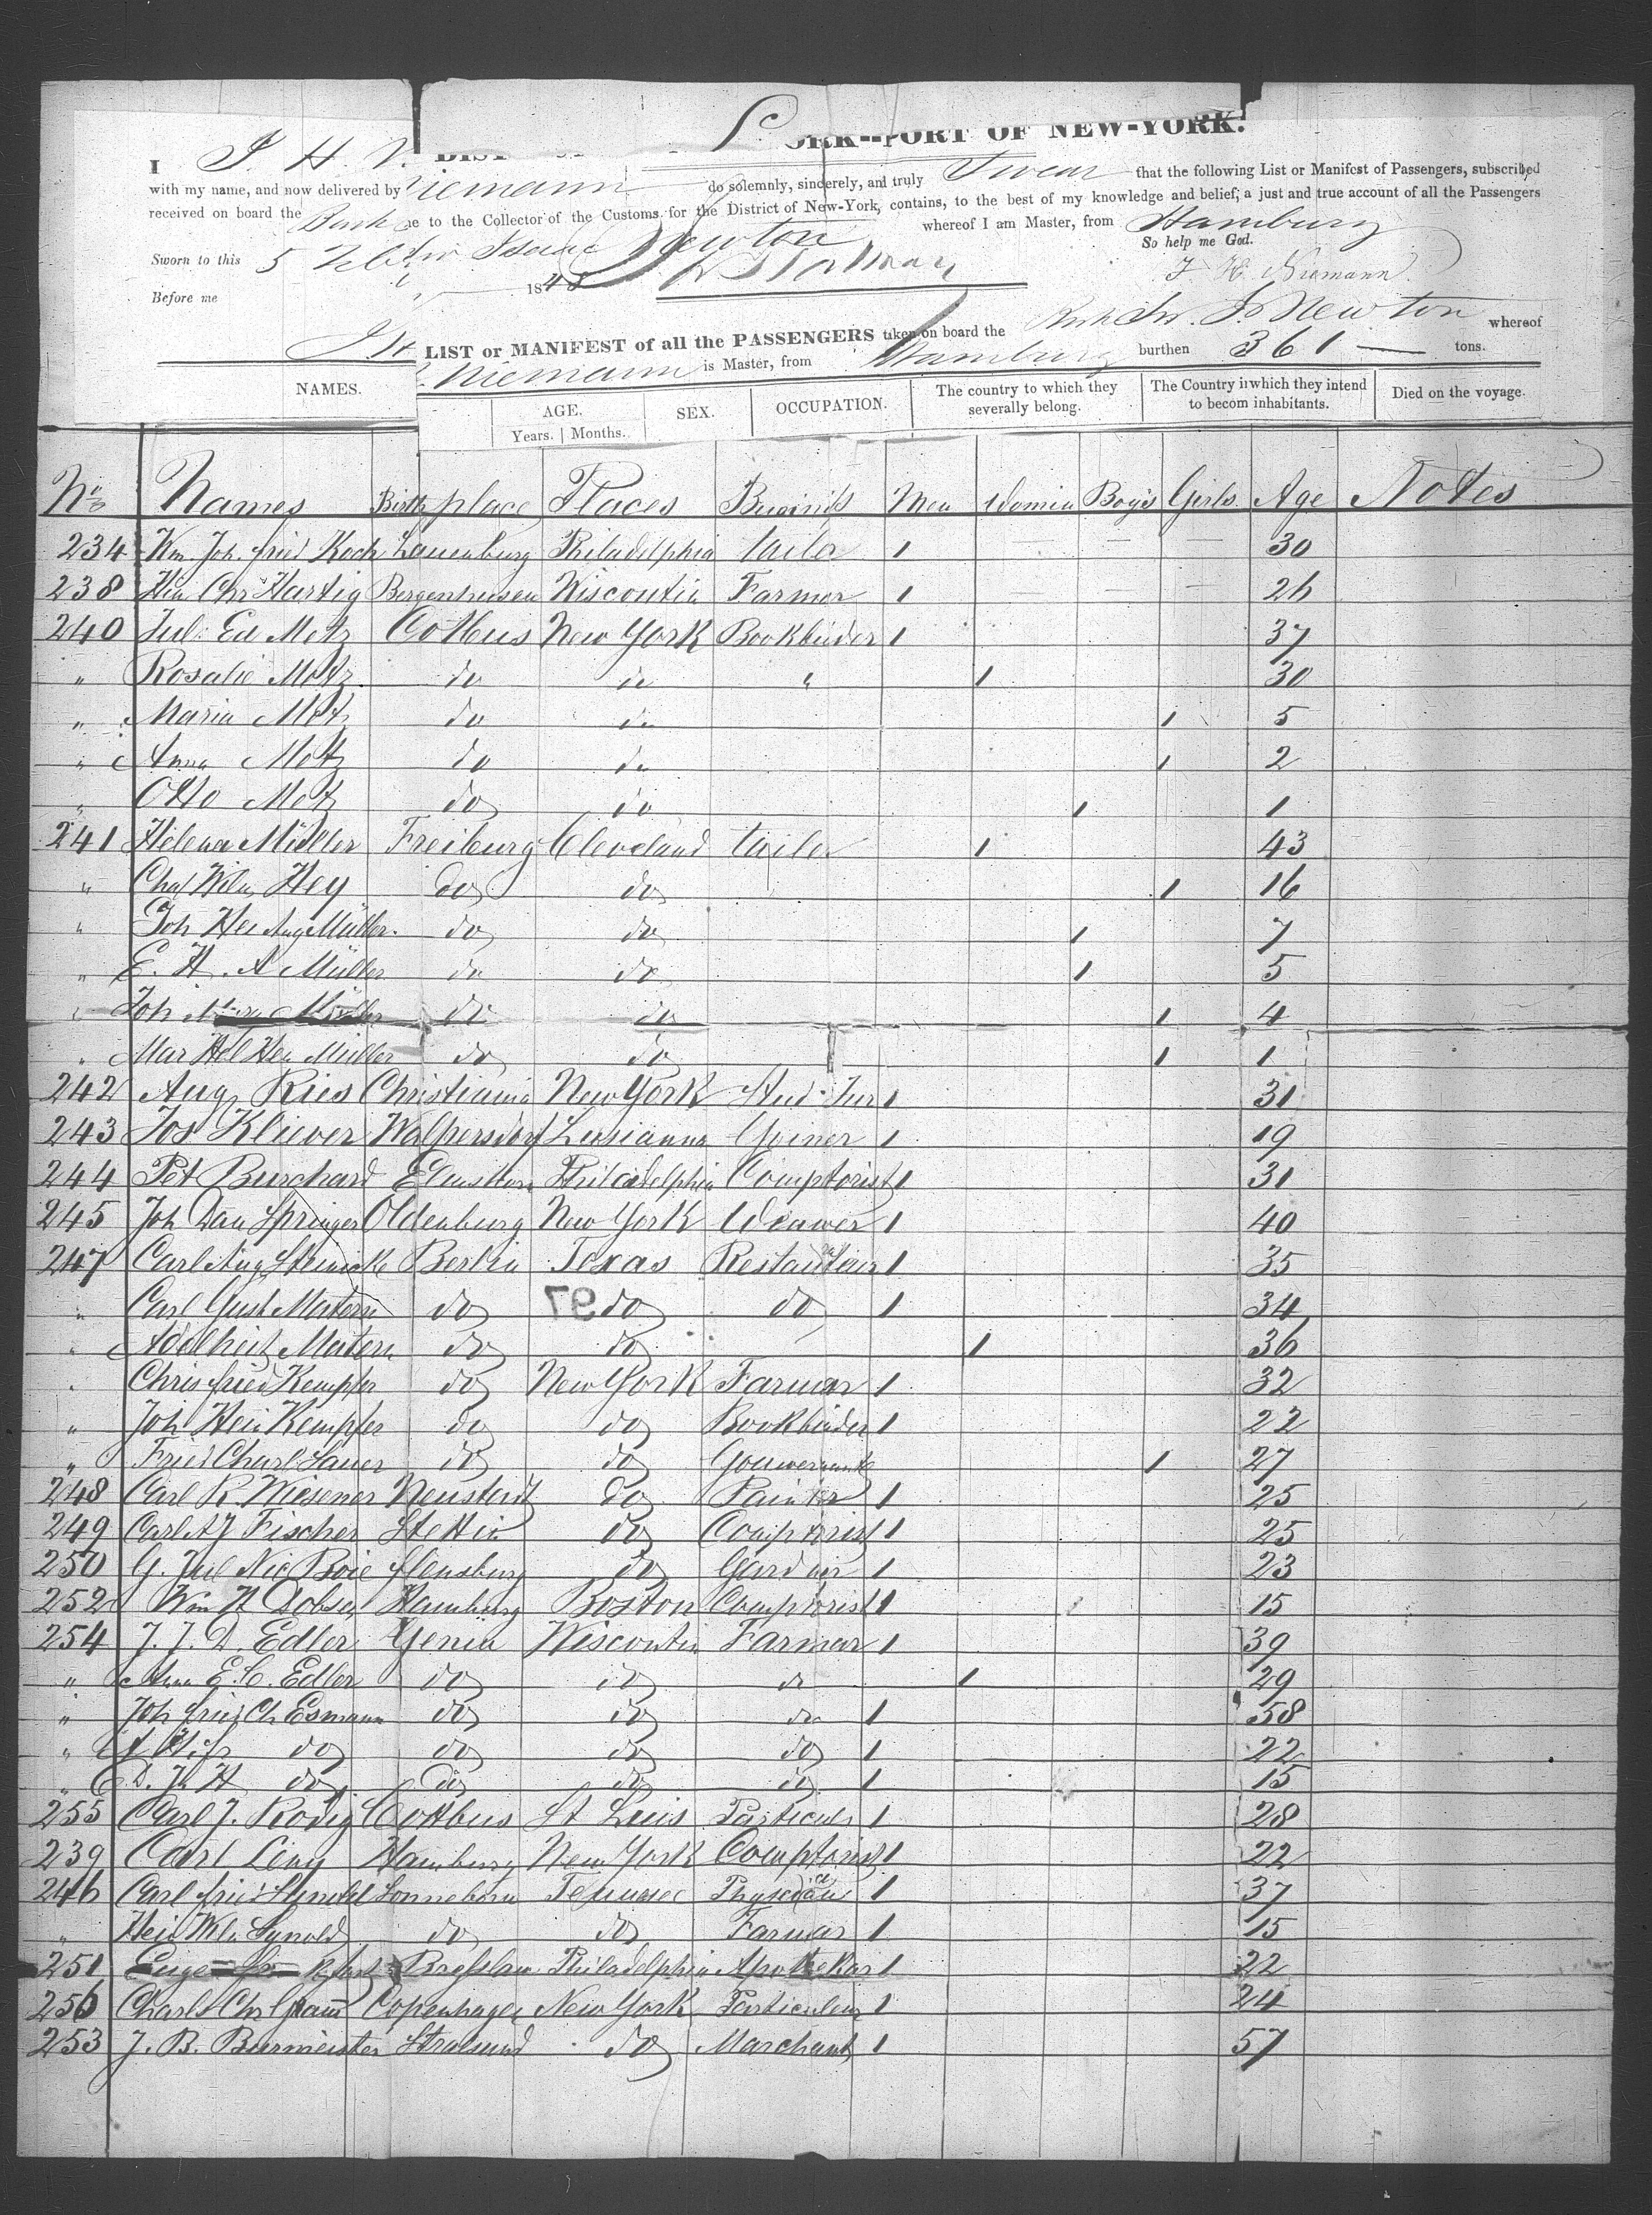 ORK--PORT OF NEW-YORK.
I J. H. Niemann do solemnly, sincerely, and truly Swear that the following List or Manifest of Passengers, subscribed
with my name, and now delivered by me to the Collector of the Customs for the District of New-York, contains, to the best of my knowledge and belief, a just and true account of all the Passengers
received on board the Bark Sir Isaac Newton whereof I am Master, from Hamburg
So help me God.
Sworn to this 5 1848 J H Niemann
Before me
LIST or MANIFEST of all the PASSENGERS taken on board the Bark Sir Is Newton whereof
J H Niemann is Master, from Hamburg burthen 361 tons.
NAMES. AGE. Years. Months. SEX. OCCUPATION. The country to which they severally belong. The Country in which they intend to becom inhabitants. Died on the voyage.
No Names Birthplace Places Businiss Men Womin Boys Girls Age Notes
234 Wm. Joh. fried Koch Lauenburg Philadelphia tailor 1 30
238 Hin Chr Hartig Bergenhusen Wiscontin Farmer 1 26
240 Jul: Ed Metz Cottbus New York Bookbinder 1 37
" Rosalie Metz do do " 1 30
" Maria Metz do do 1 5
" Anna Metz do do 1 2
" Otto Metz do do 1 1
241 Helena Müller Freiburg Cleveland tailer 1 43
" Wilh Hey do do 1 16
" Joh Her Aug Müller do do 1 7
" E. H. A Müller do do 1 5
" Joh Müller do do 1 4
" Mar Hel Hen Müller do do 1 1
242 Aug Ries Christiania New York Stud. Jur 1 31
243 Jos Kliever Walpersdorf Luisianna Yoiner 1 19
244 Pet Burchard Elmshorn Philadelphia Comptorist 1 31
245 Joh Dan Springer Oldenburg New York Weawer 1 40
247 Carl Aug Steinicke Berlin Texas 1 35
" Carl Gust Matern do 97 do do 1 34
" Adelheit Matern do do 1 36
" Chris fried Kempfer do New York Farmar 1 32
" Joh Hein Kempfer do do Bookbinder 1 22
" Fried Charl Sauer do do Gouvernante 1 27
248 Carl R. Wiesener Neustadt do Painter 1 25
249 Carl A J Fischer Stettin do Comptorist 1 25
250 G. Jul Nic Boie flensburg do Gardner 1 23
252 Wm H Dobsen Hamburg Boston Comptorist 1 15
254 J. J. D. Edler Wiscontin Farmar 1 39
" Ann E. C. Edler do do do 1 29
" Joh fried Ch Esmann do do do 1 58
" do do do do 1 22
" do do do do 1 15
255 Carl J. Rodig Cottbus St Luis Particuler 1 28
239 Carl Levy Hamburg New York Comptorist 1 22
246 Carl fried Sonneborn Tennssee Physician 1 37
" Hein Wlh Synold do do Farmar 1 15
251 Breslau Philadelphia Apottekar 1 22
256 Charl Chr Copenhagen New York Particuleur 1 24
253 J. B. Burmeister Stralsund do Marchant 1 57